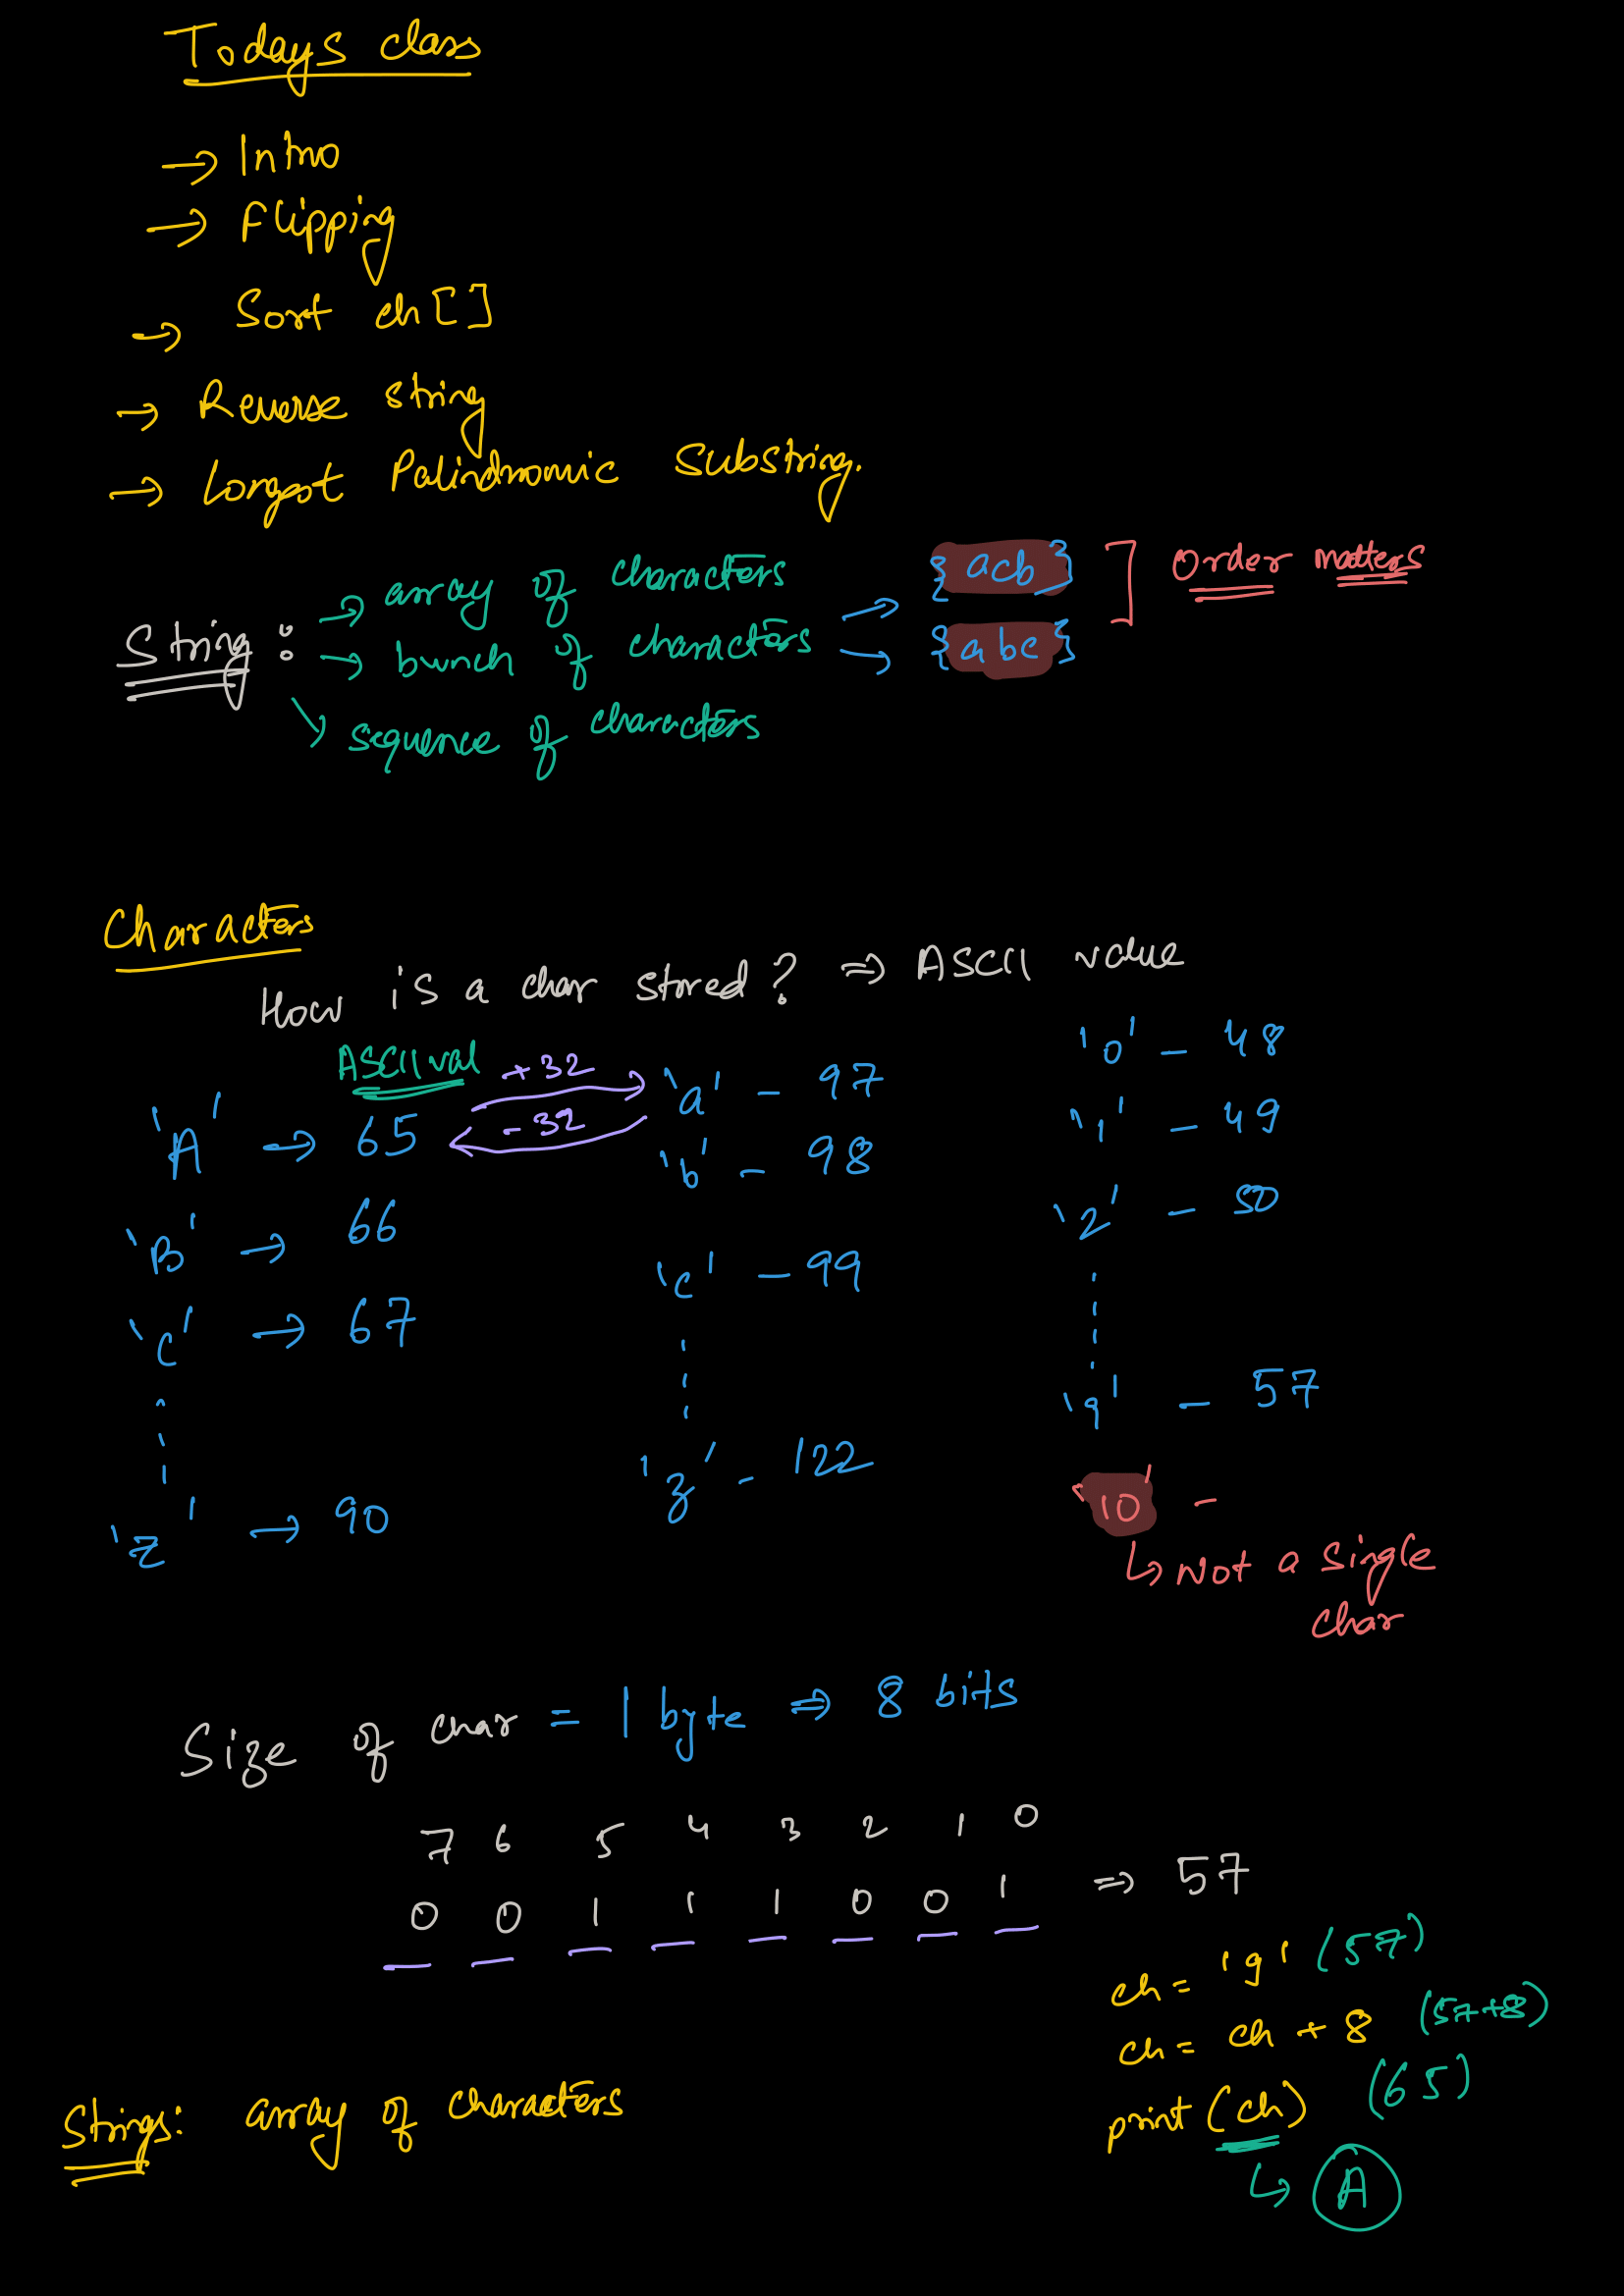 Todays class
→ Intro
→ Flipping
→ Sort ch[]
→ Reverse string
→ Longest Palindromic Substring.
String: → array of characters
→ bunch of characters → {acb}
→ {abc} ] Order matters
↘ sequence of characters
Characters
How is a char stored? ⇒ ASCII value
ASCII val
+32
-32
'A' → 65
'B' → 66
'C' → 67
'Z' → 90
'a' - 97
'b' - 98
'c' - 99
'z' - 122
'0' - 48
'1' - 49
'2' - 50
'9' - 57
'10' -
↳ Not a single
char
Size of char = 1 byte ⇒ 8 bits
7 6 5 4 3 2 1 0
0 0 1 1 1 0 0 1 ⇒ 57
ch = '9' (57)
ch = ch + 8 (57+8)
print (ch) (65)
↳ A
Strings: array of characters